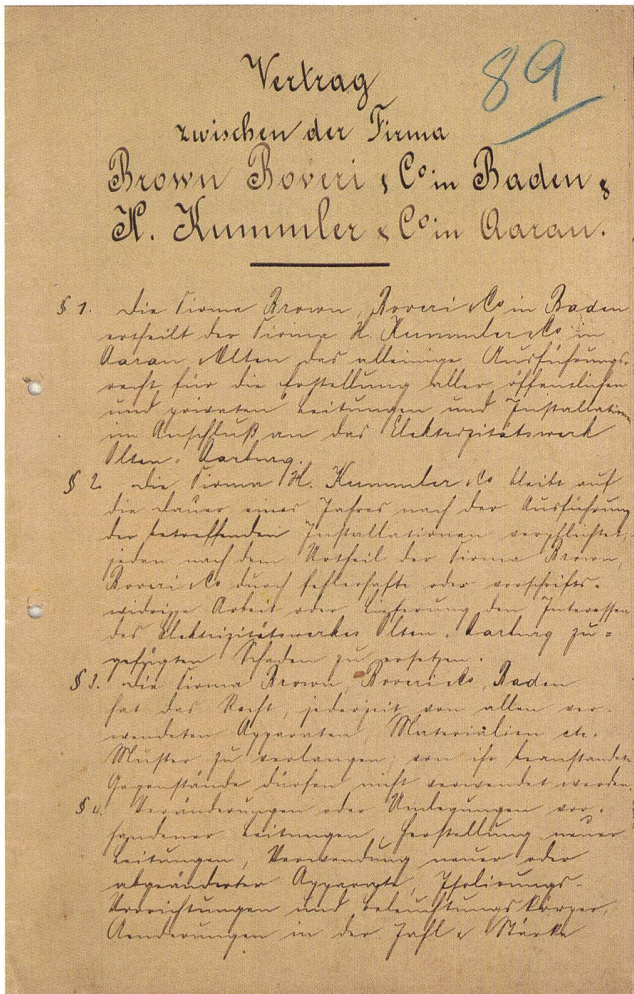 89
Vertrag
zwischen der Firma
Brown Boveri & Co in Baden &
H. Kummler & Co in Aarau.
§ 1. Die Firma Brown, Boveri & Co in Baden
ertheilt der Firma H. Kummler & Co in
Aarau, Olten das alleinige Ausführungs-
recht für die Erstellung aller öffentlichen
und privaten Leitungen und Installation
im Anschluß an das Elektrizitätswerk
Olten-Aarburg.
§ 2. Die Firma H. Kummler & Co bleibt auf
die Dauer eines Jahres nach der Ausführung
der betreffenden Installationen verpflichtet,
jeden nach dem Urtheil der Firma Brown,
Boveri & Co durch fehlerhafte oder vorschrifts-
widrige Arbeit oder Lieferung den Interessen
des Elektrizitätswerkes Olten-Aarburg zu=
gefügten Schaden zu ersetzen.
§ 3. Die Firma Brown, Boveri & Co, Baden
hat das Recht, jederzeit von allen ver-
wendeten Apparaten, Materialien etc.
Muster zu verlangen; von ihr beanstandete
Gegenstände dürfen nicht verwendet werden.
§ 4. Veränderungen oder Umlegungen vor-
handener Leitungen, Herstellung neuer
Leitungen, Verwendung neuer oder
abgeänderter Apparate, Isolirungs-
Vorrichtungen und Beleuchtungskörper,
Aenderungen in der Zahl & Stärke